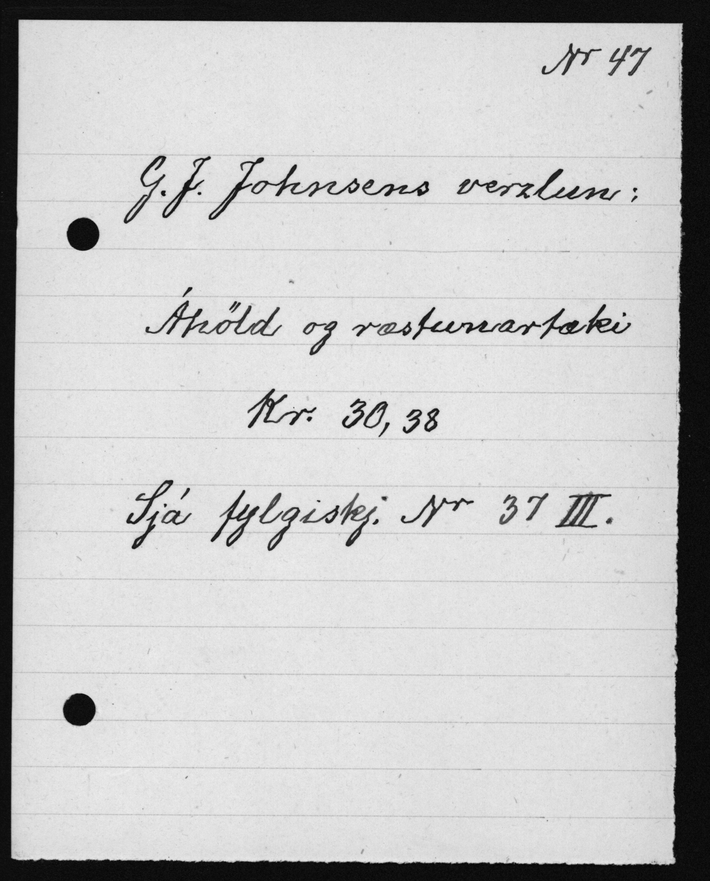 Nr 47
G. J. Johnsens verzlun:
Áhöld og ræstunartæki
Kr. 30,38
Sjá fylgiskj. Nr 37 III.